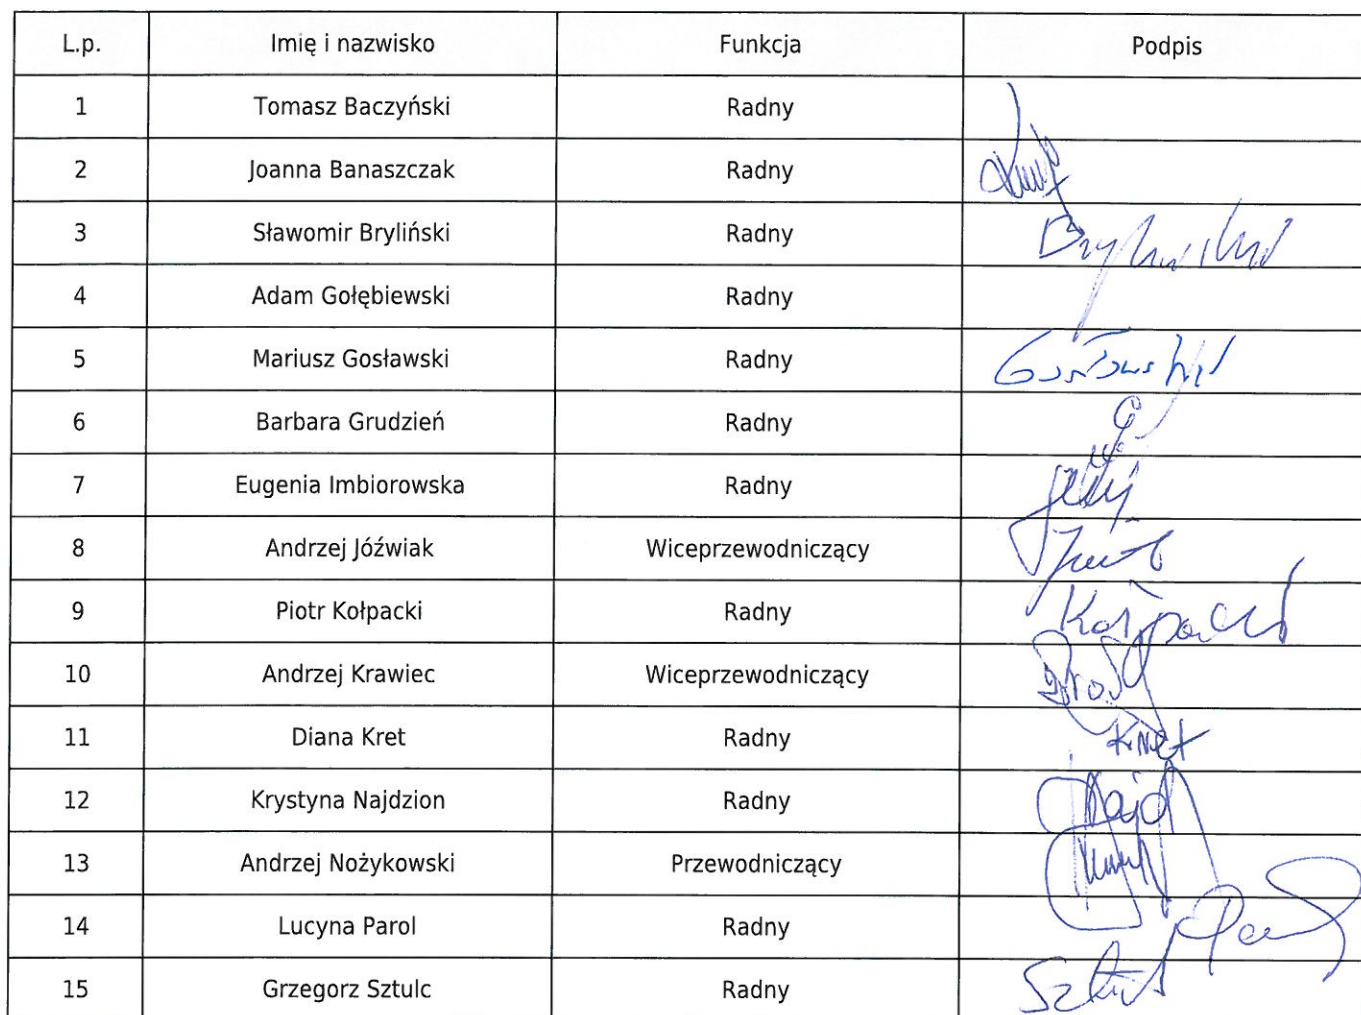 L.p. Imię i nazwisko Funkcja Podpis
1 Tomasz Baczyński Radny
2 Joanna Banaszczak Radny
3 Sławomir Bryliński Radny Bryliński
4 Adam Gołębiewski Radny
5 Mariusz Gosławski Radny Gosławski
6 Barbara Grudzień Radny
7 Eugenia Imbiorowska Radny
8 Andrzej Jóźwiak Wiceprzewodniczący
9 Piotr Kołpacki Radny Kołpacki
10 Andrzej Krawiec Wiceprzewodniczący
11 Diana Kret Radny Kret
12 Krystyna Najdzion Radny Najd
13 Andrzej Nożykowski Przewodniczący
14 Lucyna Parol Radny
15 Grzegorz Sztulc Radny